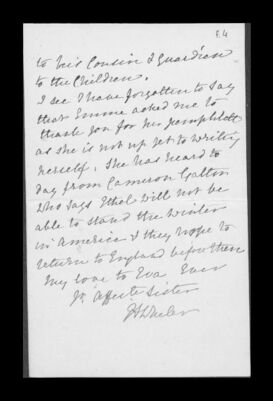 84
to his Cousin & guardian
to the Children.
I see I have forgotten to say
that Emma asked me to
thank you for his pamphlett
as she is not up yet to writing
herself. She has heard to
day from Cameron Galton
who says Ethel will not be
able to stand the winter
in America & they hope to
return to England before then
My love to Eva Ever
Yr affecte Sister